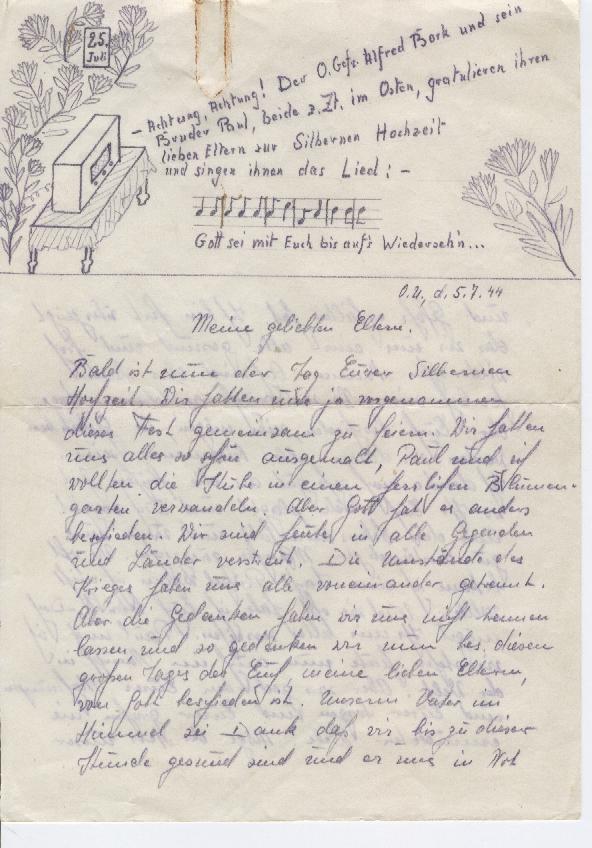 25.
Juli
- Achtung, Achtung! Der O.Gefr. Alfred Bork und sein
Bruder Paul, beide z.Zt. im Osten, gratulieren ihren
lieben Eltern zur Silbernen Hochzeit
und singen ihnen das Lied: -
Gott sei mit Euch bis auf's Wiederseh'n...
O.U., d. 5.7.44
Meine geliebten Eltern.
Bald ist nun der Tag Eurer Silbernen
Hochzeit. Wir hatten uns ja vorgenommen
dieses Fest gemeinsam zu feiern. Wir hatten
uns alles so schön ausgemalt, Paul und ich
wollten die Stube in einen herrlichen Blumen-
garten verwandeln. Aber Gott hat es anders
beschieden. Wir sind heute in alle Gegenden
und Länder verstreut. Die Umstände des
Krieges haben uns alle voneinander getrennt.
Aber die Gedanken haben wir uns nicht hemmen
lassen und so gedenken wir nun des diesen
großen Tages der Euch, meine lieben Eltern,
von Gott beschieden ist. Unserem Vater im
Himmel sei Dank daß wir bis zu dieser
Stunde gesund sind und er uns in Not